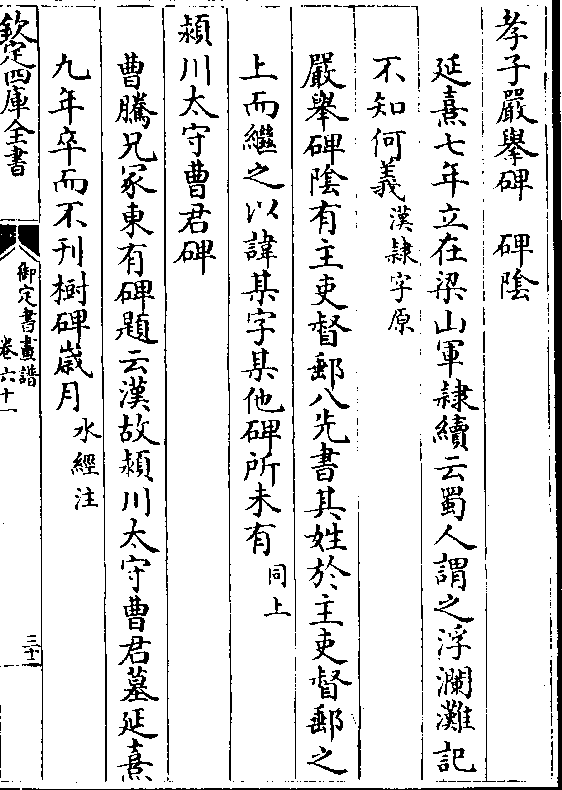 孝子嚴舉碑　碑陰
延熹七年立在梁山軍隸續云蜀人謂之浮瀾灘記
不知何義漢隸字原
嚴舉碑陰有主吏督郵八先書其姓於主吏督郵之
上而繼之以諱某字某他碑所未有同上
潁川太守曹君碑
曹騰兄冢東有碑題云漢故潁川太守曹君墓延熹
九年卒而不刋樹碑歲月水經注
欽定四庫全書
御定書畫譜
卷六十一
三十一